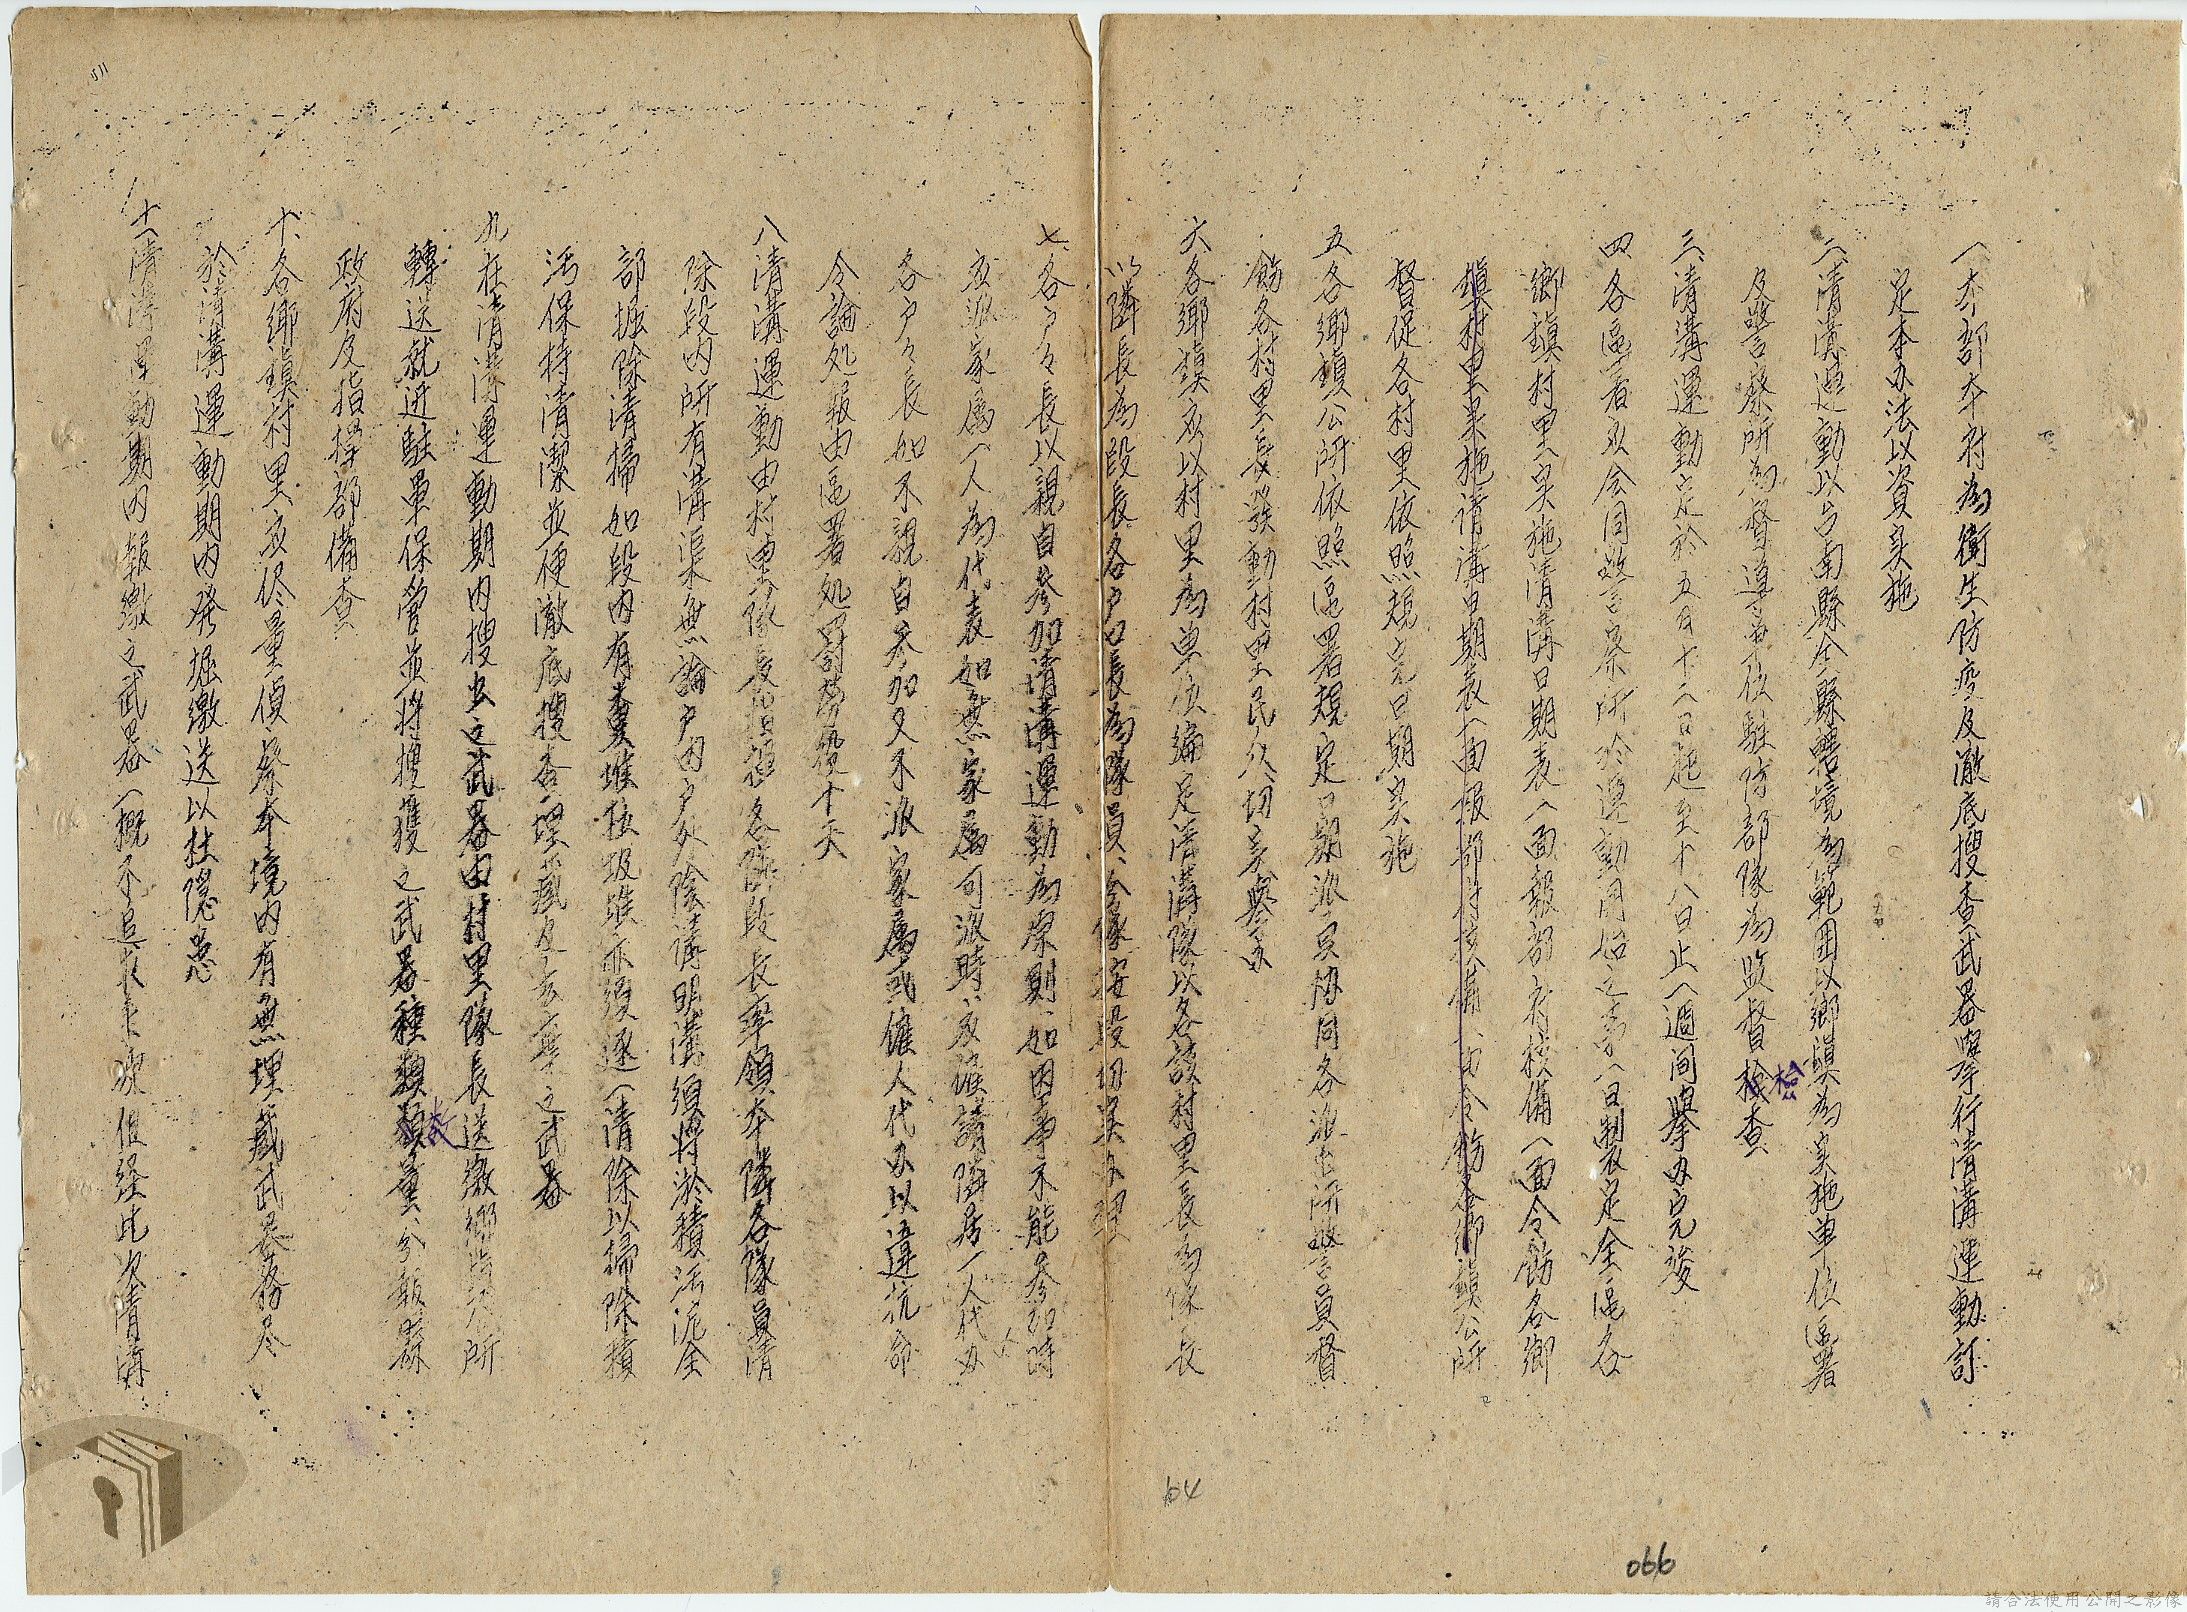 一、本部本府為衛生防疫及澈底搜查武器舉行清溝運動訂
定本办法以資实施
二、清溝運動以台南縣全縣轄境為範囲以鄉鎮為实施单位區署
及警察所為督導单位駐防部隊為監督檢查
檢
三、清溝運動定於五月十二日起至十八日止一週间内舉办完竣
四、各區署应会同警察所於運動開始之前一日製定全區各
鄉鎮村里实施清溝日期表一面報部府核備一面令飭各鄉
鎮村里实施清溝日期表一面報部府核備一面令飭各鄉鎮公所
督促各村里依照規定日期实施
五、各鄉鎮公所依照區署規定日期派員協同各派出所警員督
飭各村里長發動村里民众切实舉办
六、各鄉鎮应以村里為单位編定清溝隊以各該村里長為隊長
以隣長為段長各户口長為隊員、全隊按段切实办理
七、各户々長以親自参加清溝運動為原則、如因事不能参加時
应派家属一人為代表如無家属可派時、应僱請隣居一人代办
各户々長如不親自参加又不派家属或僱人代办以違抗命
令論処報由區署処罰勞役十天
八、清溝運動由村里隊長指揮各隣段長率領本隣各隊員清
除段内所有溝渠無論户内户外陰溝明溝須將淤積污泥全
部掘除清掃如段内有糞堆垃圾堆亦須逐一清除以掃除積
污保持清潔並便澈底搜查埋藏及丢棄之武器
九、在清溝運動期内搜出之武器由村里隊長送繳鄉鎮公所
轉送就近駐軍保管並將搜獲之武器種類類量分報縣
数
政府及指揮部備查
十、各鄉鎮村里应侭量偵察本境内有無埋藏武器務尽
於清溝運動期内発掘繳送以杜隱患
十一、清溝運動期内報繳之武器一概不追求来源但経此次清溝
511
64
066
請合法使用公開之影像